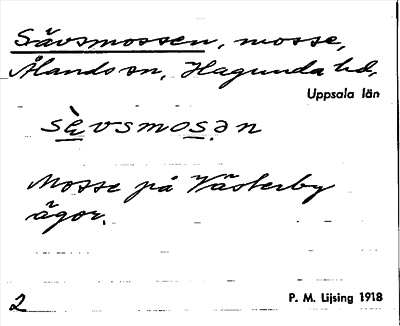 Sävsmossen, mosse,
Ålands sn, Hagunda hd,
Uppsala län
sὲvsmosən
Mosse på Västerby
ägor.
2
P. M. Lijsing 1918